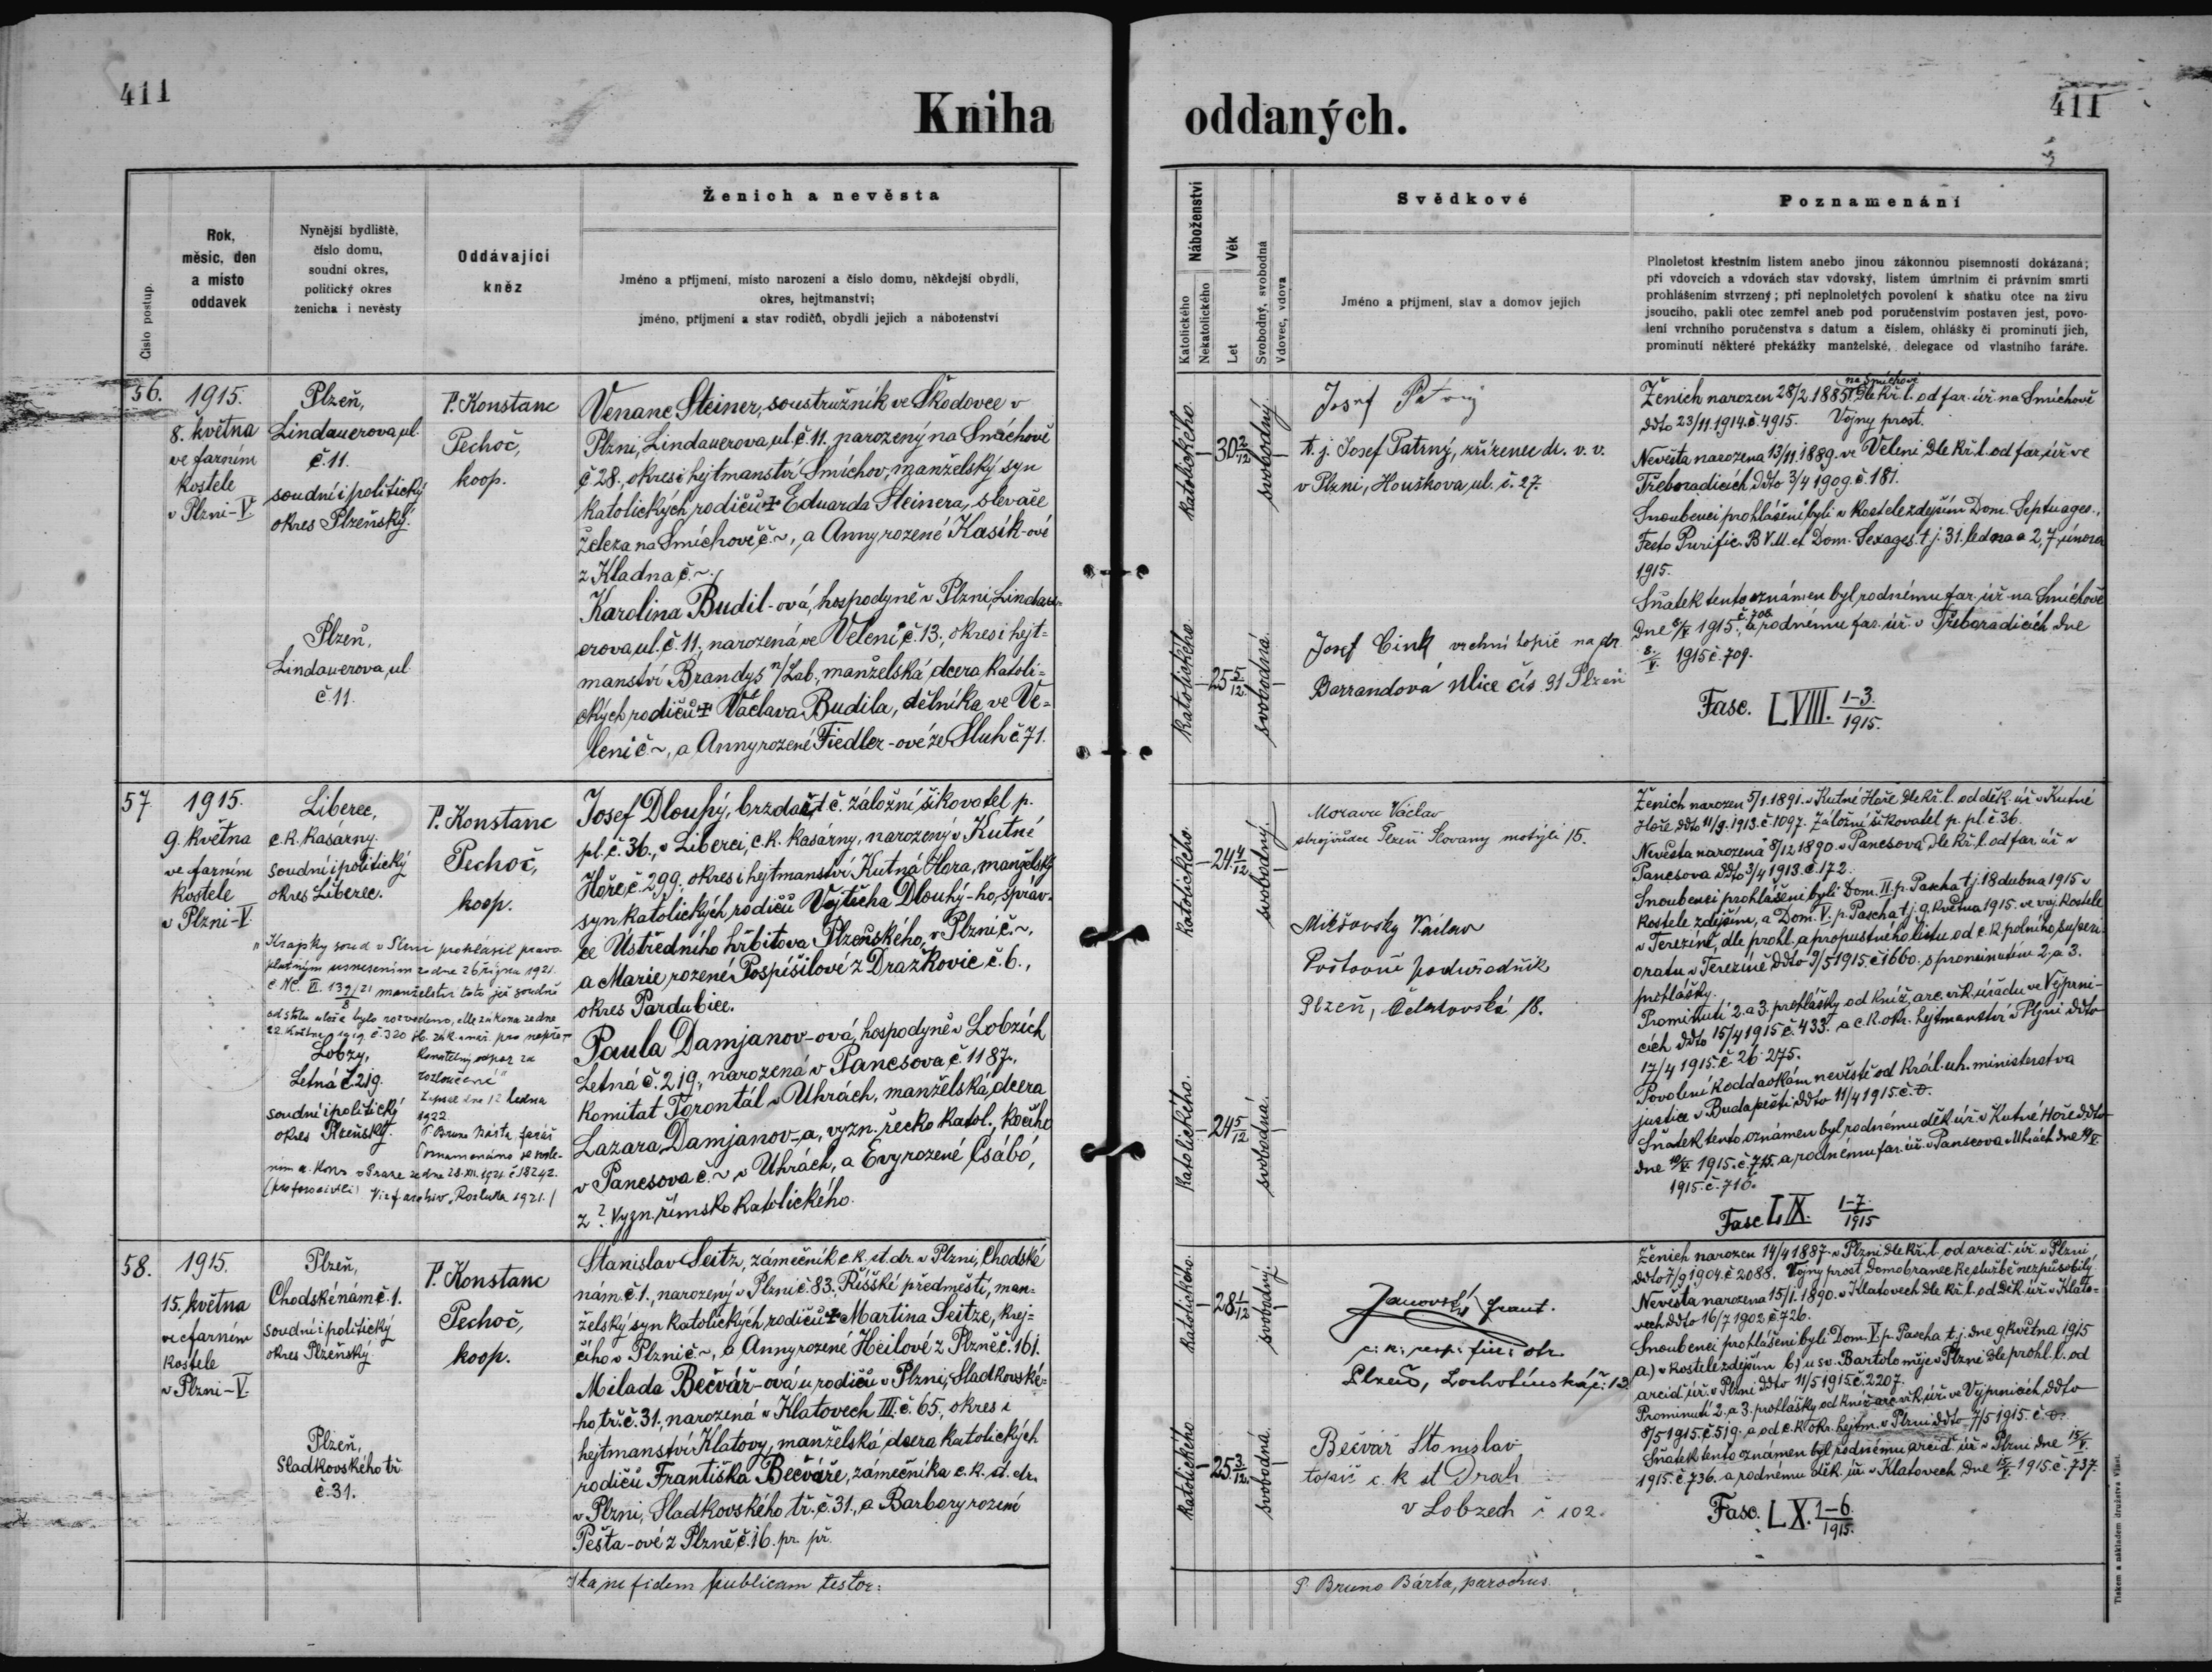 411
Kniha
oddaných.
411
Číslo postup.
Rok,
měsíc, den
a místo
oddavek
Nynější bydliště,
číslo domu,
soudní okres,
politický okres
ženicha i nevěsty
Oddávající
kněz
Ženich a nevěsta
Jméno a příjmení, místo narození a číslo domu, někdejší obydlí,
okres, hejtmanství;
jméno, příjmení a stav rodičů, obydlí jejich a náboženství
Náboženství
Katolického
Nekatolického
Věk
Let
Svobodný, svobodná
Vdovec, vdova
Svědkové
Jméno a příjmení, stav a domov jejich
Poznamenání
Plnoletost křestním listem anebo jinou zákonnou písemností dokázaná;
při vdovcích a vdovách stav vdovský, listem úmrtním či právním smrti
prohlášením stvrzený; při neplnoletých povolení k sňatku otce na živu
jsoucího, pakli otec zemřel aneb pod poručenstvím postaven jest, povo-
lení vrchního poručenstva s datum a číslem, ohlášky či prominutí jich,
prominutí některé překážky manželské, delegace od vlastního faráře.
56.
1915.
8. května
ve farním
kostele
v Plzni-V.
Plzeň,
Lindauerova ul.
č. 11.
soudní i politický
okres Plzeňský.
Plzeň,
Lindauerova ul.
č. 11.
P. Konstanc
Pechoč,
koop.
Venanc Steiner, soustružník ve Škodovce v
Plzni, Lindauerova ul. č. 11. narozený na Smíchově
č. 28., okres i hejtmanství Smíchov, manželský syn
katolických rodičů + Eduarda Steinera, slevače
železa na Smíchově č. ~, a Anny rozené Kasík-ové
z Kladna č. ~.
Karolina Budil-ová, hospodyně v Plzni, Lindau-
erova ul. č. 11., narozená ve Veleni č. 13., okres i hejt-
manství Brandys n/Lab., manželská dcera katoli-
ckých rodičů + Václava Budila, dělníka ve Ve-
leni č. ~, a Anny rozené Fiedler-ové ze Sluh č. 71.
katolického.
30 2/12
svobodný.
katolického.
25
svobodná.
Josef Patrný
t. j. Josef Patrný, zřízenec dr. v. v.
v Plzni, Houškova ul. č. 27.
Josef Cink vrchní topič na dr.
Barrandova Ulice čís 31 Plzeň
na Smíchově
Ženich narozen 28/2.1885. Dle kř. l. od far. úř. na Smíchově
ddto 23/11.1914. č. 4915. Vojny prost.
Nevěsta narozena 13/11.1889. ve Veleni dle kř. l. od far. úř. ve
Třeboradicích ddto 3/4 1909. č. 181.
Snoubenci prohlášeni byli v kostele zdejším Dom. Septuages.,
Festo Purific. B.V.M. et Dom. Sexages. t. j. 31. ledna a 2, 7. února
1915.
Sňatek tento oznámen byl rodnému far. úř. na Smíchově
dne 8/V. 1915., č. 708. a rodnému far. úř. v Třeboradicích dne
8./V. 1915 č. 709.
Fasc. LVIII. 1-3./1915.
57.
1915.
9. května
ve farním
kostele
v Plzni-V.
Liberec,
c. k. kasárny.
soudní i politický
okres Liberec.
P. Konstanc
Pechoč,
koop.
"Krajský soud v Plzni prohlásil pravo-
platným usnesením ze dne 26 října 1921.
č. Nc. VI. 139/21/8 manželství toto již soudně
od stolu a lože bylo rozvedeno, dle zákona ze dne
22. května 1919 č. 320 Sb. zák. a nař. pro nepře-
konatelný odpor za
rozloučené"
Zapsal dne 12 ledna
1922.
P. Bruno Bárta, farář
Poznamenáno se svole-
ním a. Kons. v Praze ze dne 28. XII. 1921. č. 18242.
Viz f. archiv. Rozluka 1921.)
Lobzy,
Letná č. 219.
soudní i politický
okres Plzeňský.
Josef Dlouhý, brzdař, t. č. záložní šikovatel p.
pl. č. 36., v Liberci, c. k. kasárny, narozený v Kutné
Hoře č. 299., okres i hejtmanství Kutná Hora, manželský
syn katolických rodičů Vojtěcha Dlouhý-ho, správ-
ce Ústředního hřbitova Plzeňského, v Plzni č. ~,
a Marie rozené Pospíšilové z Dražkovic č. 6.,
okres Pardubice.
Paula Damjanov-ová, hospodyně v Lobzích
Letná č. 219., narozená v Pancsova č. 1187.,
komitat Torontál v Uhrách, manželská dcera
Lazara Damjanov-a, vyzn. řecko katol., kočího
v Pancsova č. ~ v Uhrách, a Evy rozené Csábó,
z ? vyzn. římsko katolického.
katolického.
24 4/12
svobodný.
katolického.
24 5/12
svobodná.
Morava Václav
strojvůdce Plzeň Slovany motýlí 15.
Mikšovský Václav
Poštovní podúředník
Plzeň, Čelakovská 18.
Ženich narozen 5/1.1891. v Kutné Hoře dle kř. l. od děk. úř. v Kutné
Hoře ddto 11/9.1913. č. 1097. Záložní šikovatel p. pl. č. 36.
Nevěsta narozena 8/12 1890. v Pancsova dle kř. l. od far. úř. v
Pancsova ddto 3/4 1913. č. 172.
Snoubenci prohlášeni byli Dom. II. p. Pascha t. j. 18 dubna 1915 v
kostele zdejším, a Dom. V. p. Pascha t. j. 9. května 1915. ve voj. kostele
v Terezíně, dle prohl. a propustného listu od c. k. polního superi-
oratu v Terezíně ddto 9/5 1915. č. 1660. s prominutím 2. a 3.
prohlášky.
Prominutí 2. a 3. prohlášky od kníž. arc. vik. úřadu ve Vejprni-
cích ddto 15/4 1915 č. 433. a c. k. okr. hejtmanství v Plzni ddto
17/4 1915. č. 26.275.
Povolení k oddavkám nevěstě od král. uh. ministerstva
justice v Budapešti ddto 11/4 1915. č. 0.
Sňatek tento oznámen byl rodnému děk. úř. v Kutné Hoře ddto
dne 10/V. 1915. č. 715. a rodnému far. úř. v Pancsova v Uhrách dne 10/V.
1915. č. 716.
Fasc. LIX. 1-7./1915
58.
1915.
15. května
ve farním
kostele
v Plzni-V.
Plzeň,
Chodské nám. č. 1.
soudní i politický
okres Plzeňský.
Plzeň,
Sladkovského tř.
č. 31.
P. Konstanc
Pechoč,
koop.
Stanislav Seitz, zámečník c. k. st. dr. v Plzni, Chodské
nám. č. 1., narozený v Plzni č. 83., Říšské předměstí, man-
želský syn katolických rodičů + Martina Seitze, krej-
čího v Plzni č. ~, a Anny rozené Heilové z Plzně č. 161.
Milada Bečvář-ová u rodičů v Plzni, Sladkovské-
ho tř. č. 31., narozená v Klatovech III. č. 65., okres i
hejtmanství Klatovy, manželská dcera katolických
rodičů Františka Bečváře, zámečníka c. k. st. dr.
v Plzni, Sladkovského tř. č. 31., a Barbory rozené
Pešta-ové z Plzně č. 16. pr. př.
katolického.
28 1/12
svobodný.
katolického
25 3/12.
svobodná.
Janovský Frant.
Plzeň, Lochotínská č: 12
Bečvář Stanislav
topič c. k. st Drah
v Lobzech č 102.
Ženich narozen 14/4 1887. v Plzni dle kř. l. od arciď. úř. v Plzni
ddto 7/9 1904. č. 2088. Vojny prost. Domobranec ke službě nezpůsobilý.
Nevěsta narozena 15/1. 1890. v Klatovech dle kř. l. od děk. úř. v Klato-
vech ddto 16/7 1902 č. 726.
Snoubenci prohlášeni byli Dom. V. p. Pascha t. j. dne 9 května 1915
a) v kostele zdejším b) u sv. Bartoloměje v Plzni dle prohl. l. od
arciď. úř. v Plzni ddto 11/5 1915. č. 2207.
Prominutí 2. a 3. prohlášky od kníž. arc. vik. úř. ve Vejprnicích, ddto
8/5 1915. č. 519. a od c. k. okr. hejtm. v Plzni ddto 7/5 1915. č. 0.
Sňatek tento oznámen byl rodnému arciď. úř. v Plzni dne 15/V.
1915. č. 736. a rodnému děk. úř. v Klatovech dne 15/V. 1915. č. 737.
Fasc. LX. 1-6./1915.
Ita in fidem publicam testor:
P. Bruno Bárta, parochus.
Tiskem a nákladem družstva Vlast.